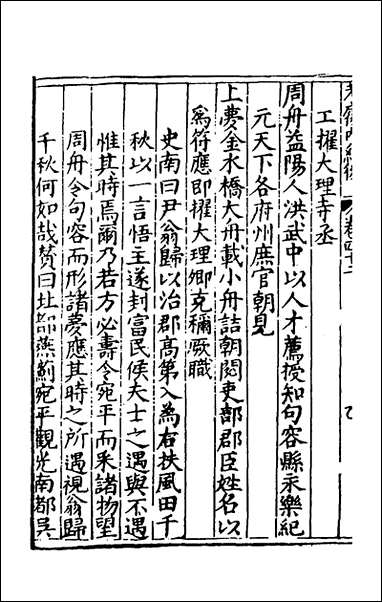 卷四十二
工擢大理寺丞
周舟益陽人洪武中以人才薦授知句容縣永樂紀
元天下各府州庶官朝見
上夢金水橋大舟載小舟詰朝閱吏部郡臣姓名以
為符應即擢大理卿克稱厥職
史南曰尹翁歸以治郡高第入為右扶風田千
秋以一言悟主遂封富民侯夫士之遇與不遇
惟其時焉爾乃若方必壽令宛平而釆諸物望
周舟令句容而形諸夢應其時之所遇視翁歸
千秋何如哉贊曰北都燕薊宛平觀光南都吳